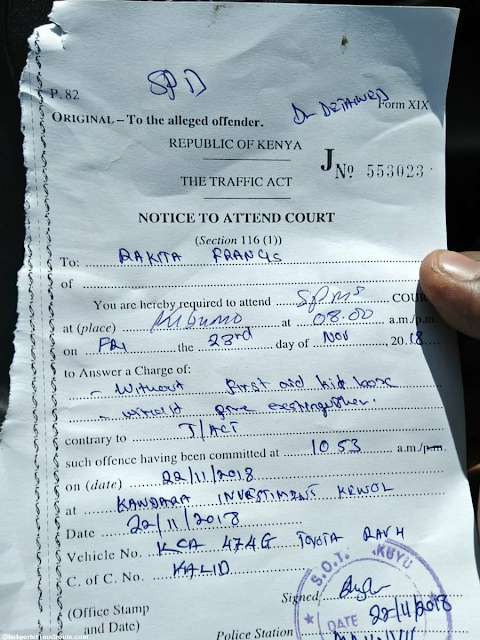 SPD
P. 82
DL DETAINED
Form XIX
ORIGINAL – To the alleged offender.
REPUBLIC OF KENYA
J No 553023
THE TRAFFIC ACT
NOTICE TO ATTEND COURT
(Section 116 (1))
To: RAKITA FRANCIS
of
You are hereby required to attend SPM's COUR
at (place) at 08.00 a.m./p.m.
on FRI the 23rd day of Nov 2018
to Answer a Charge of:
- Without first aid kid box
- without fire extinguisher.
contrary to T/ACT
such offence having been committed at 10 53 a.m./p.m.
on (date) 22/11/2018
at KANDARA INVESTIMENT
Date 22/11/2018
Vehicle No. KCA 474G TOYOTA RAV4
C. of C. No. KALID
S.O.T. KIKUYU
Signed
(Office Stamp
and Date)
DATE 22/11/2018
Police Station